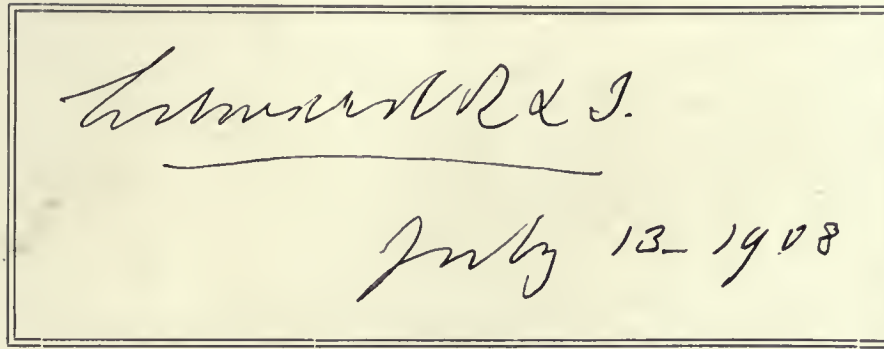 Edward R & I.
July 13-1908